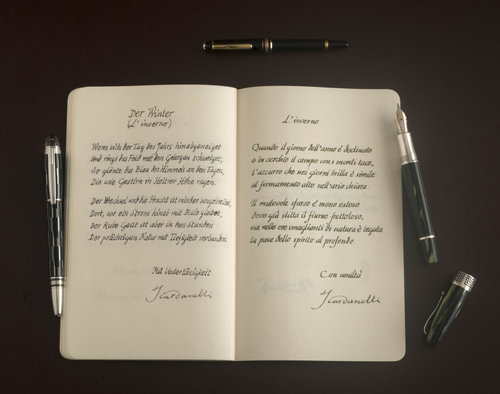 Der Winter
(L'inverno)
Wenn sich der Tag des Jahrs hinabgeneiget
Und rings das Feld mit den Gebirgen schweiget,
So glänzt das Blau des Himmels an den Tagen,
Die wie Gestirn in heitrer Höhe ragen.
Der Wechsel und die Pracht ist minder umgebreitet,
Dort, wo ein Strom hinab mit Eile gleitet,
Der Ruhe Geist ist aber in den Stunden
Der prächtigen Natur mit Tiefigkeit verbunden.
Mit Untertänigkeit
Scardanelli
L'inverno
Quando il giorno dell'anno è declinato
e in cerchio il campo con i monti tace,
l'azzurro che nei giorni brilla è simile
al firmamento alto nell'aria chiara.
Il mutevole sfarzo è meno esteso
dove giù slitta il fiume frettoloso,
ma nelle ore smaglianti di natura è legata
la pace dello spirito al profondo.
Con umiltà
Scardanelli